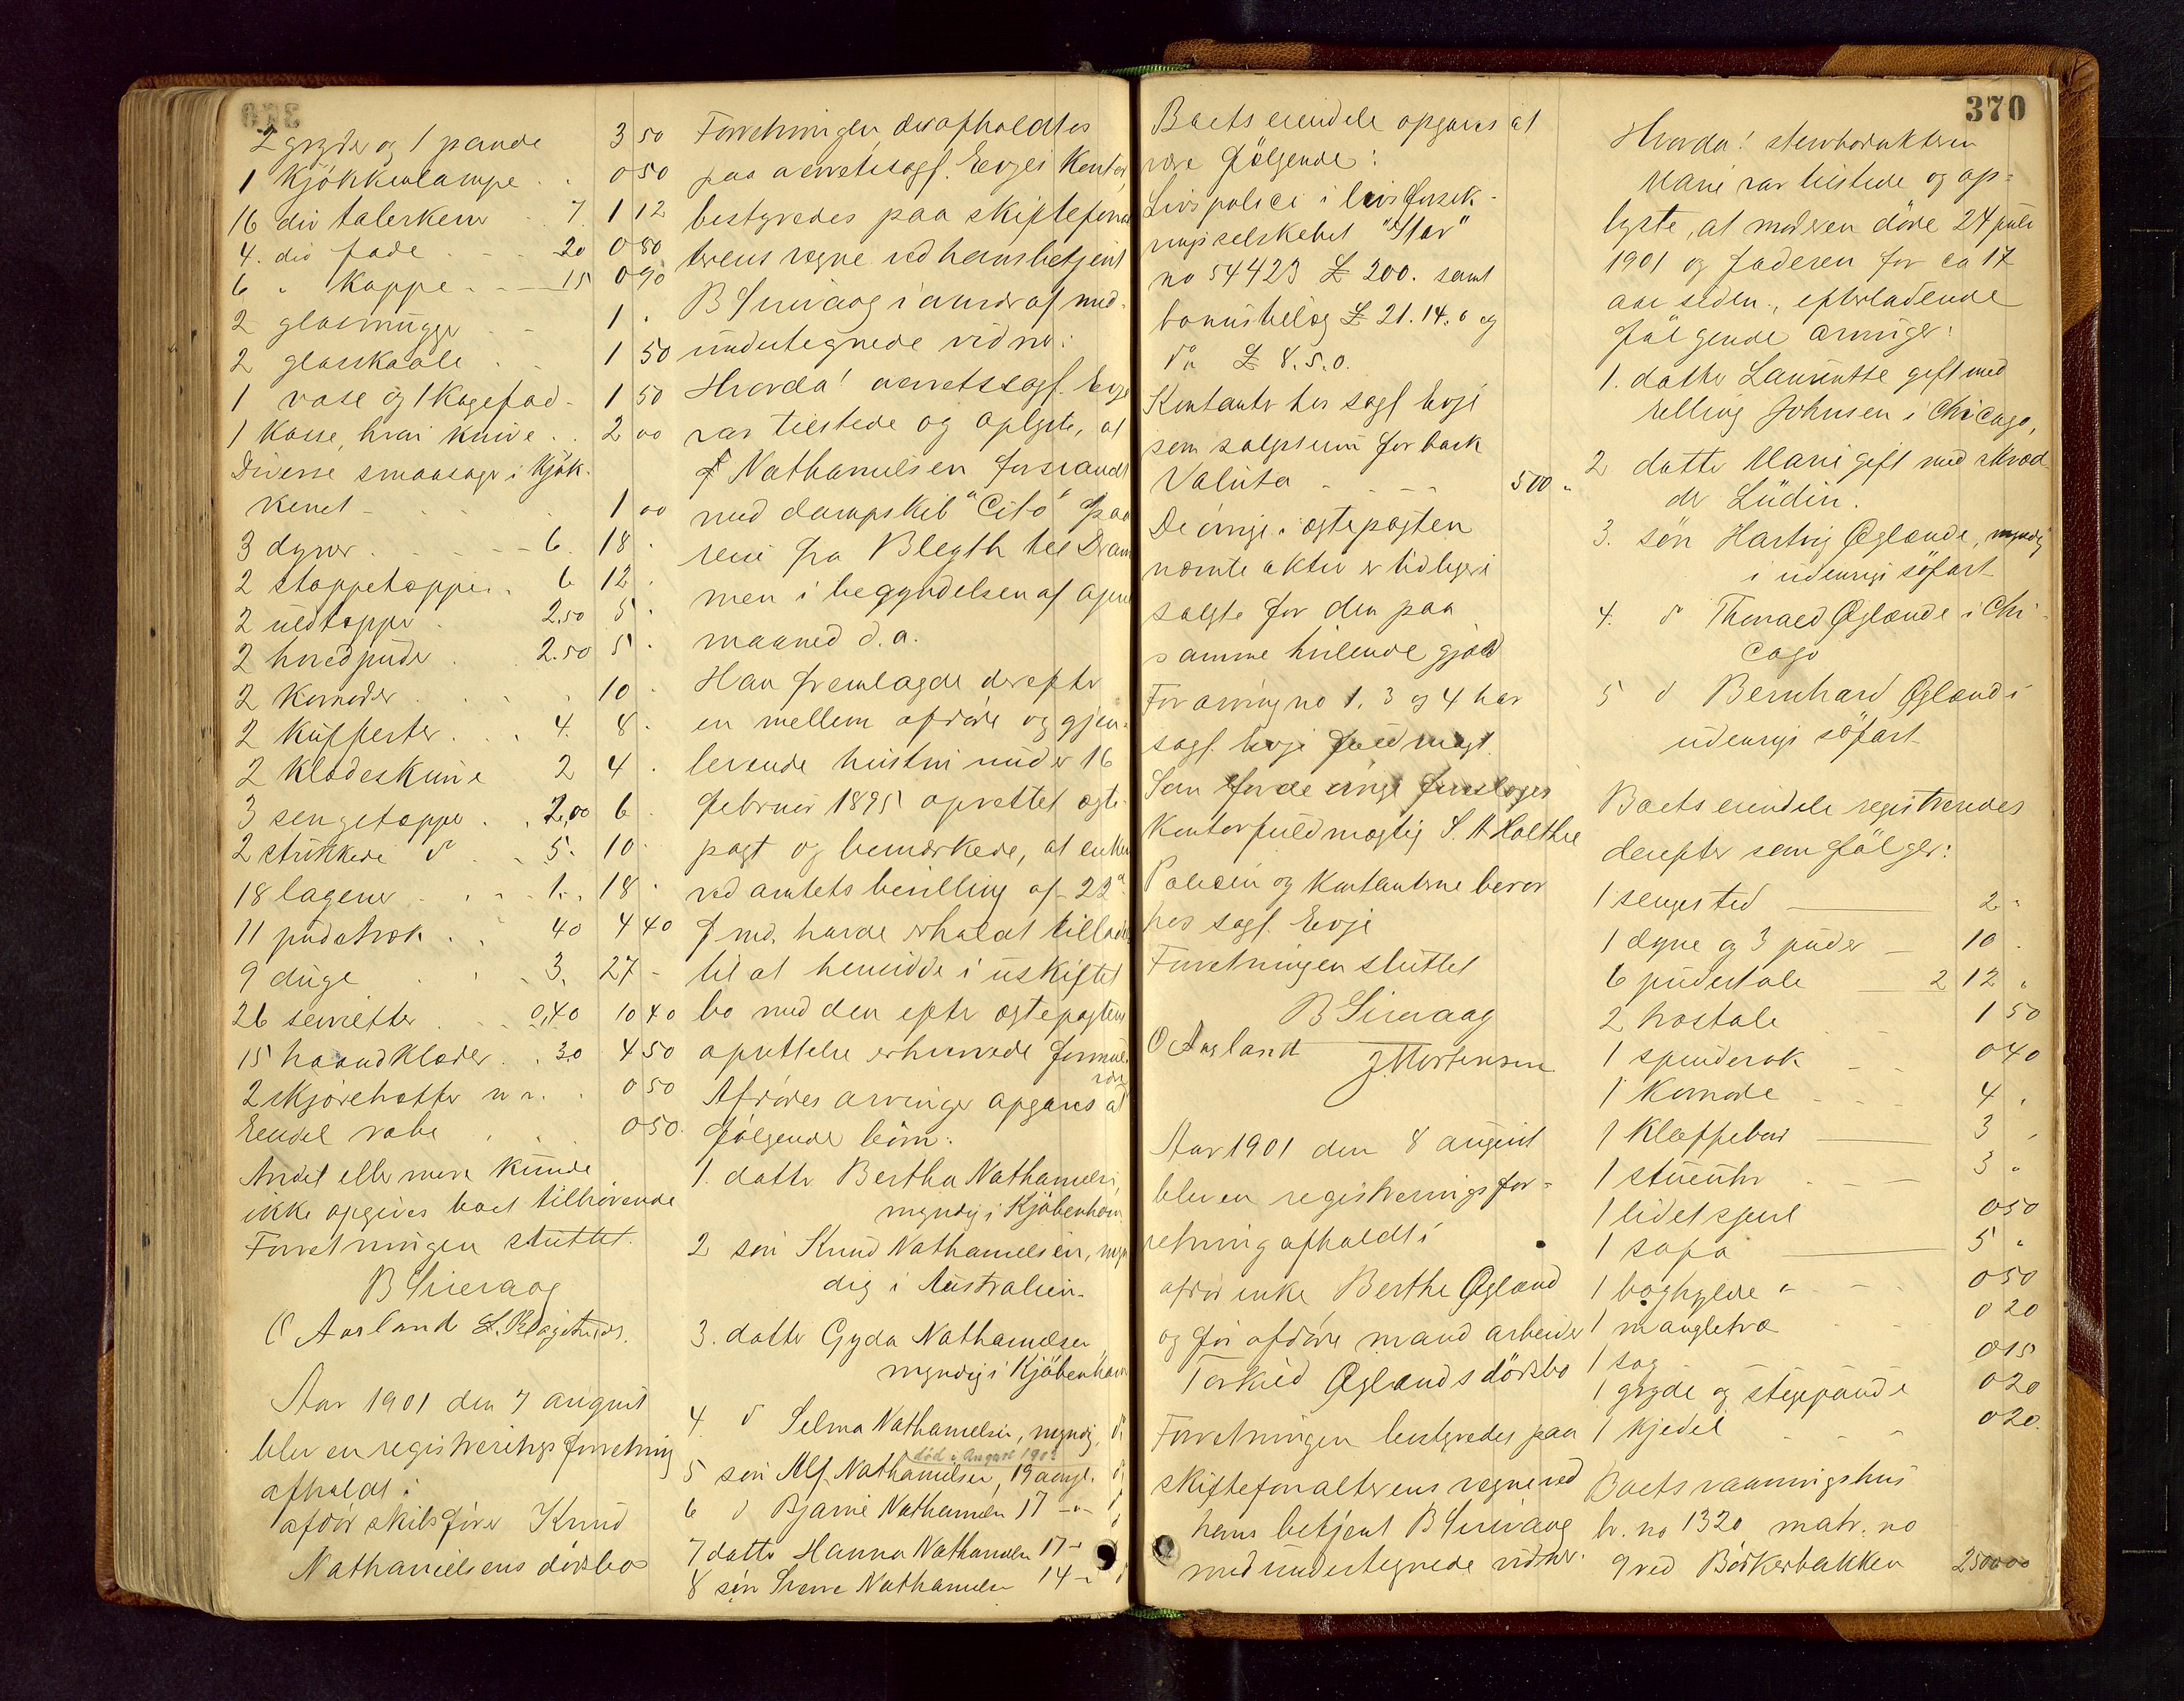 2 gryder og 1 pande 3 50
1 Kjökkenlampe 0 50
16 div talerkener 7 1 12
4. div fade 20 0 80
6 " Koppe 15 0 90
2 glasmugger 1 "
2 glasskaale 1 50
1 vase og 1 Kagefad 1 50
1 Kasse, hvori Knive 2 00
Diverse smaasager i Kjök-
kenet 1 00
3 dyner 6. 18 "
2 stoppetæpper 6 12 "
2 uldtæpper 2.50 5 "
2 hovedpuder 2.50 5 "
2 Komoder 10 "
2 Kufferter 4. 8 "
2 Klædeskurve 2 4 "
3 sengetæpper 2,00 6
2 strikkede do 5. 10 "
18 lagener 1. 18 "
11 pudetræk 40 4 40
9 duge 3. 27 -
26 servietter 0,40 10 40
15 haandklæder 30 4 50
2 Skjörehatter 0 50
Endel 0 50
Andet eller mere Kunde
ikke opgives boet tilhörende
Forretningen sluttet.
B Sirevaag
O Aarland
Aar 1901 den 7 august
blev en registreringsforretning
afholdt i
afdöde skibsförer Knud
Nathanielsens dödsbo
Forretningen, der afholdtes
paa overretssagf. Evjes Kontor,
bestyredes paa skifteforval
terens vegne ved hans betjent
B Sirevaag i nærvær af med-
undertegnede vidner:
Hvorda! overretssagf. Evje
var tilstede og oplyste, at
Nathanielsen forsvandt
med dampskib "Cito" paa
reise fra Blyth til Dram
men i begyndelsen af april
maaned d. a.
Han fremlagde derefter
en mellem afdöde og gjen-
levende hustru under 16
februar 1895 oprettet ægte-
pagt og bemærkede, at enken
ved amtets bevilling af 22de
f md. havde erholdt tilladelse
til at hensidde i uskiftet
bo med den efter ægtepagtens
oprettelse erhvervede formue
Afdödes arvinger opgaves at
være
fölgende börn:
1. datter Bertha Nathanielsen,
myndig i Kjöbenhavn
2 sön Knud Nathanielsen, myn
dig i Australien.
3. datter Gyda Nathanielsen
myndig i Kjöbenhavn
4. do Selma Nathanielsen, myndig, do
död i August 1902
5 sön Alf Nathanielsen, 19 aar gl. do
6 do Bjarne Nathanielsen 17 - " -
7 datter Hanna Nathanielsen 17 -
8 sön Sverre Nathanielsen 14 -
Boets eiendele opgaves at
være fölgende:
Livspolice i livsforsik-
ringsselskabet "Star"
no 54423 £ 200. samt
bonusbelöb £ 21.14.6 og
do £ 8.5.0.
Kontanter hos sagf Evje
som salgssum for bark
Valuta 500 "
De övrige i ægtepagten
nævnte aktier er tidligere
solgte for den paa
samme hvilende gjæld
For arving no 1, 3 og 4 har
sagf. Evje fuldmagt.
Som for de övrige foresloges
Kontorfuldmægtig S. A Holthe
Policen og Kontanterne beror
hos sagf. Evje
Forretningen sluttet
B Sirevaag
O Aarland J Mortensen
Aar 1901 den 8 august
blev en registreringsfor-
retning afholdt i
afdöde enke Berthe Ögland
og för afdöde mand arbeider
Torkild Öglands dödsbo
Forretningen bestyredes paa
skifteforvalterens vegne ved
hans betjent B Sirevaag
med undertegnede vidner.
370
Hvorda! stervbodatteren
Marie var tilstede og op-
lyste, at moderen döde 24 juli
1901 og faderen for ca 17
aar siden, efterladende
fölgende arvinger:
1. datter Lauritse gift med
Elling Johnsen i Chicago,
2 datter Marie gift med skræd
der Lüdin.
3. sön Hartvig Öglænde, myndig
i udenrigs söfart
4. do Thorvald Öglænde i Chi-
cago
5 do Bernhard Ögland i
udenrigs söfart
Boets eiendele registreredes
derefter som fölger:
1 sengested 2 "
1 dyne og 3 puder 10 "
6 pindestole 2 12 "
2 " 1 50
1 spinderok 0 40
1 Komode 4 "
1 Klaffebord 3 "
1 stueuhr 3 "
1 lidet speil 0 50
1 sofa 5 "
1 boghylde 0 50
1 mangletræ 0 20
1 sag 0 15
1 gryde og stegepande 0 20
1 Kjedel 0 20
Boets vaaningshus
br. no 1320 matr. no
9 ved Börkerbakken 2500 00